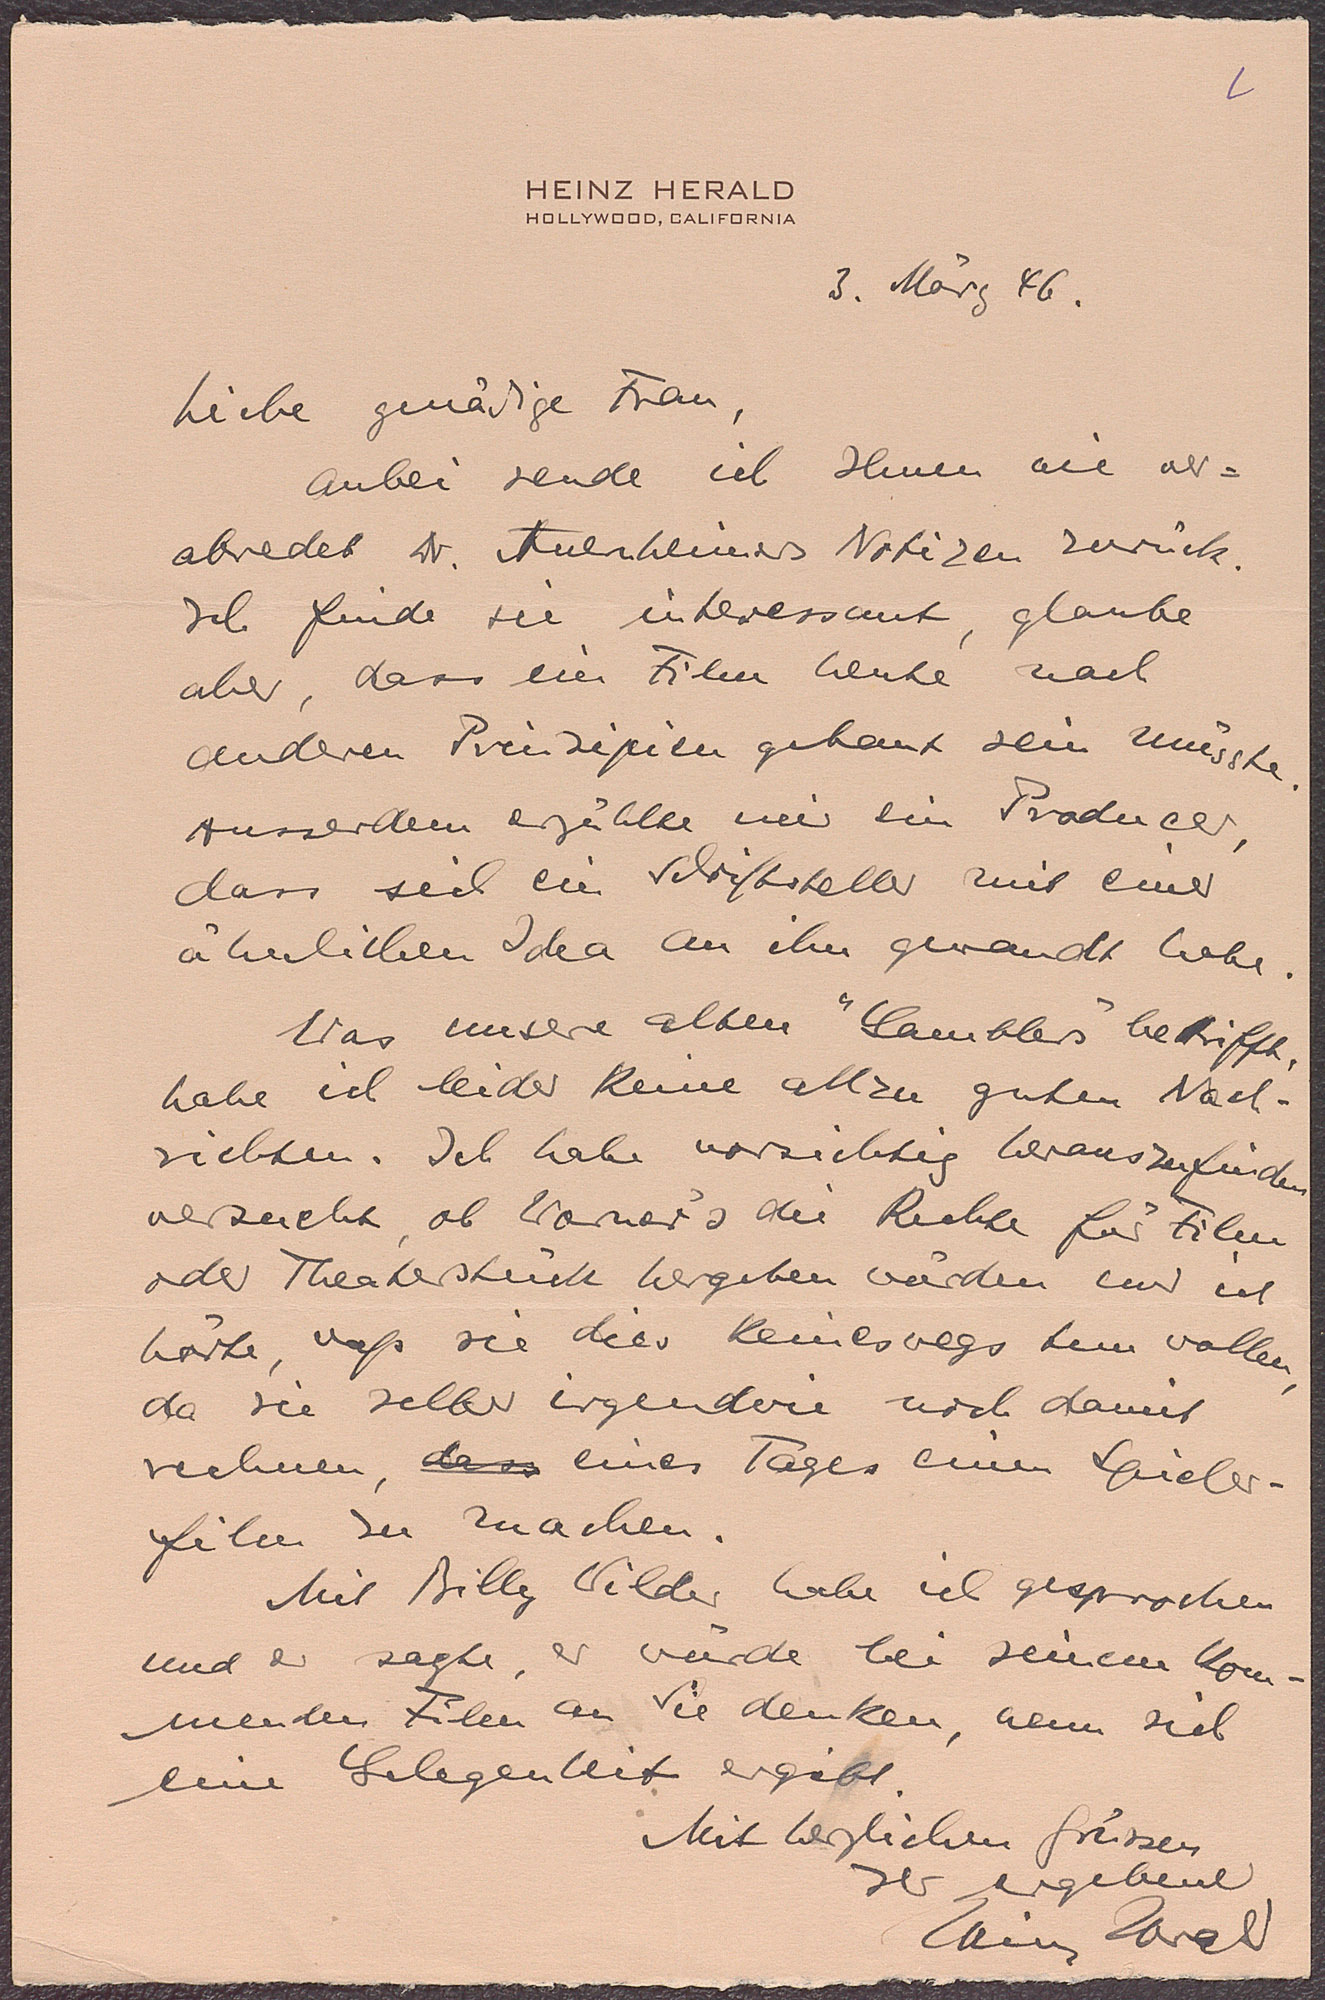 HEINZ HERALD
HOLLYWOOD, CALIFORNIA
3. März 46.
Liebe gnädige Frau,
anbei sende ich Ihnen wie ver=
abredet Dr. Auernheimers Notizen zurück.
Ich finde sie interessant, glaube
aber, dass ein Film heute nach
anderen Prinzipien gebaut sein müsste.
Ausserdem erzählte mir ein Producer,
dass sich ein Schriftsteller mit einer
ähnlichen Idea an ihn gewandt habe.
Was unsere alten "Gamblers" betrifft,
habe ich leider keine allzu guten Nach-
richten. Ich habe vorsichtig herauszufinden
versucht, ob Warner's die Rechte für Film
oder Theaterstück hergeben würden und ich
hörte, daß sie dies keineswegs tun wollen,
da sie selber irgendwie noch damit
rechnen, dass eines Tages einen Spieler-
film zu machen.
Mit Billy Wilder habe ich gesprochen
und er sagte, er würde bei seinem kom-
menden Film an Sie denken, wenn sich
eine Gelegenheit ergibt.
Mit herzlichen Grüssen
Ihr ergebener
Heinz Herald